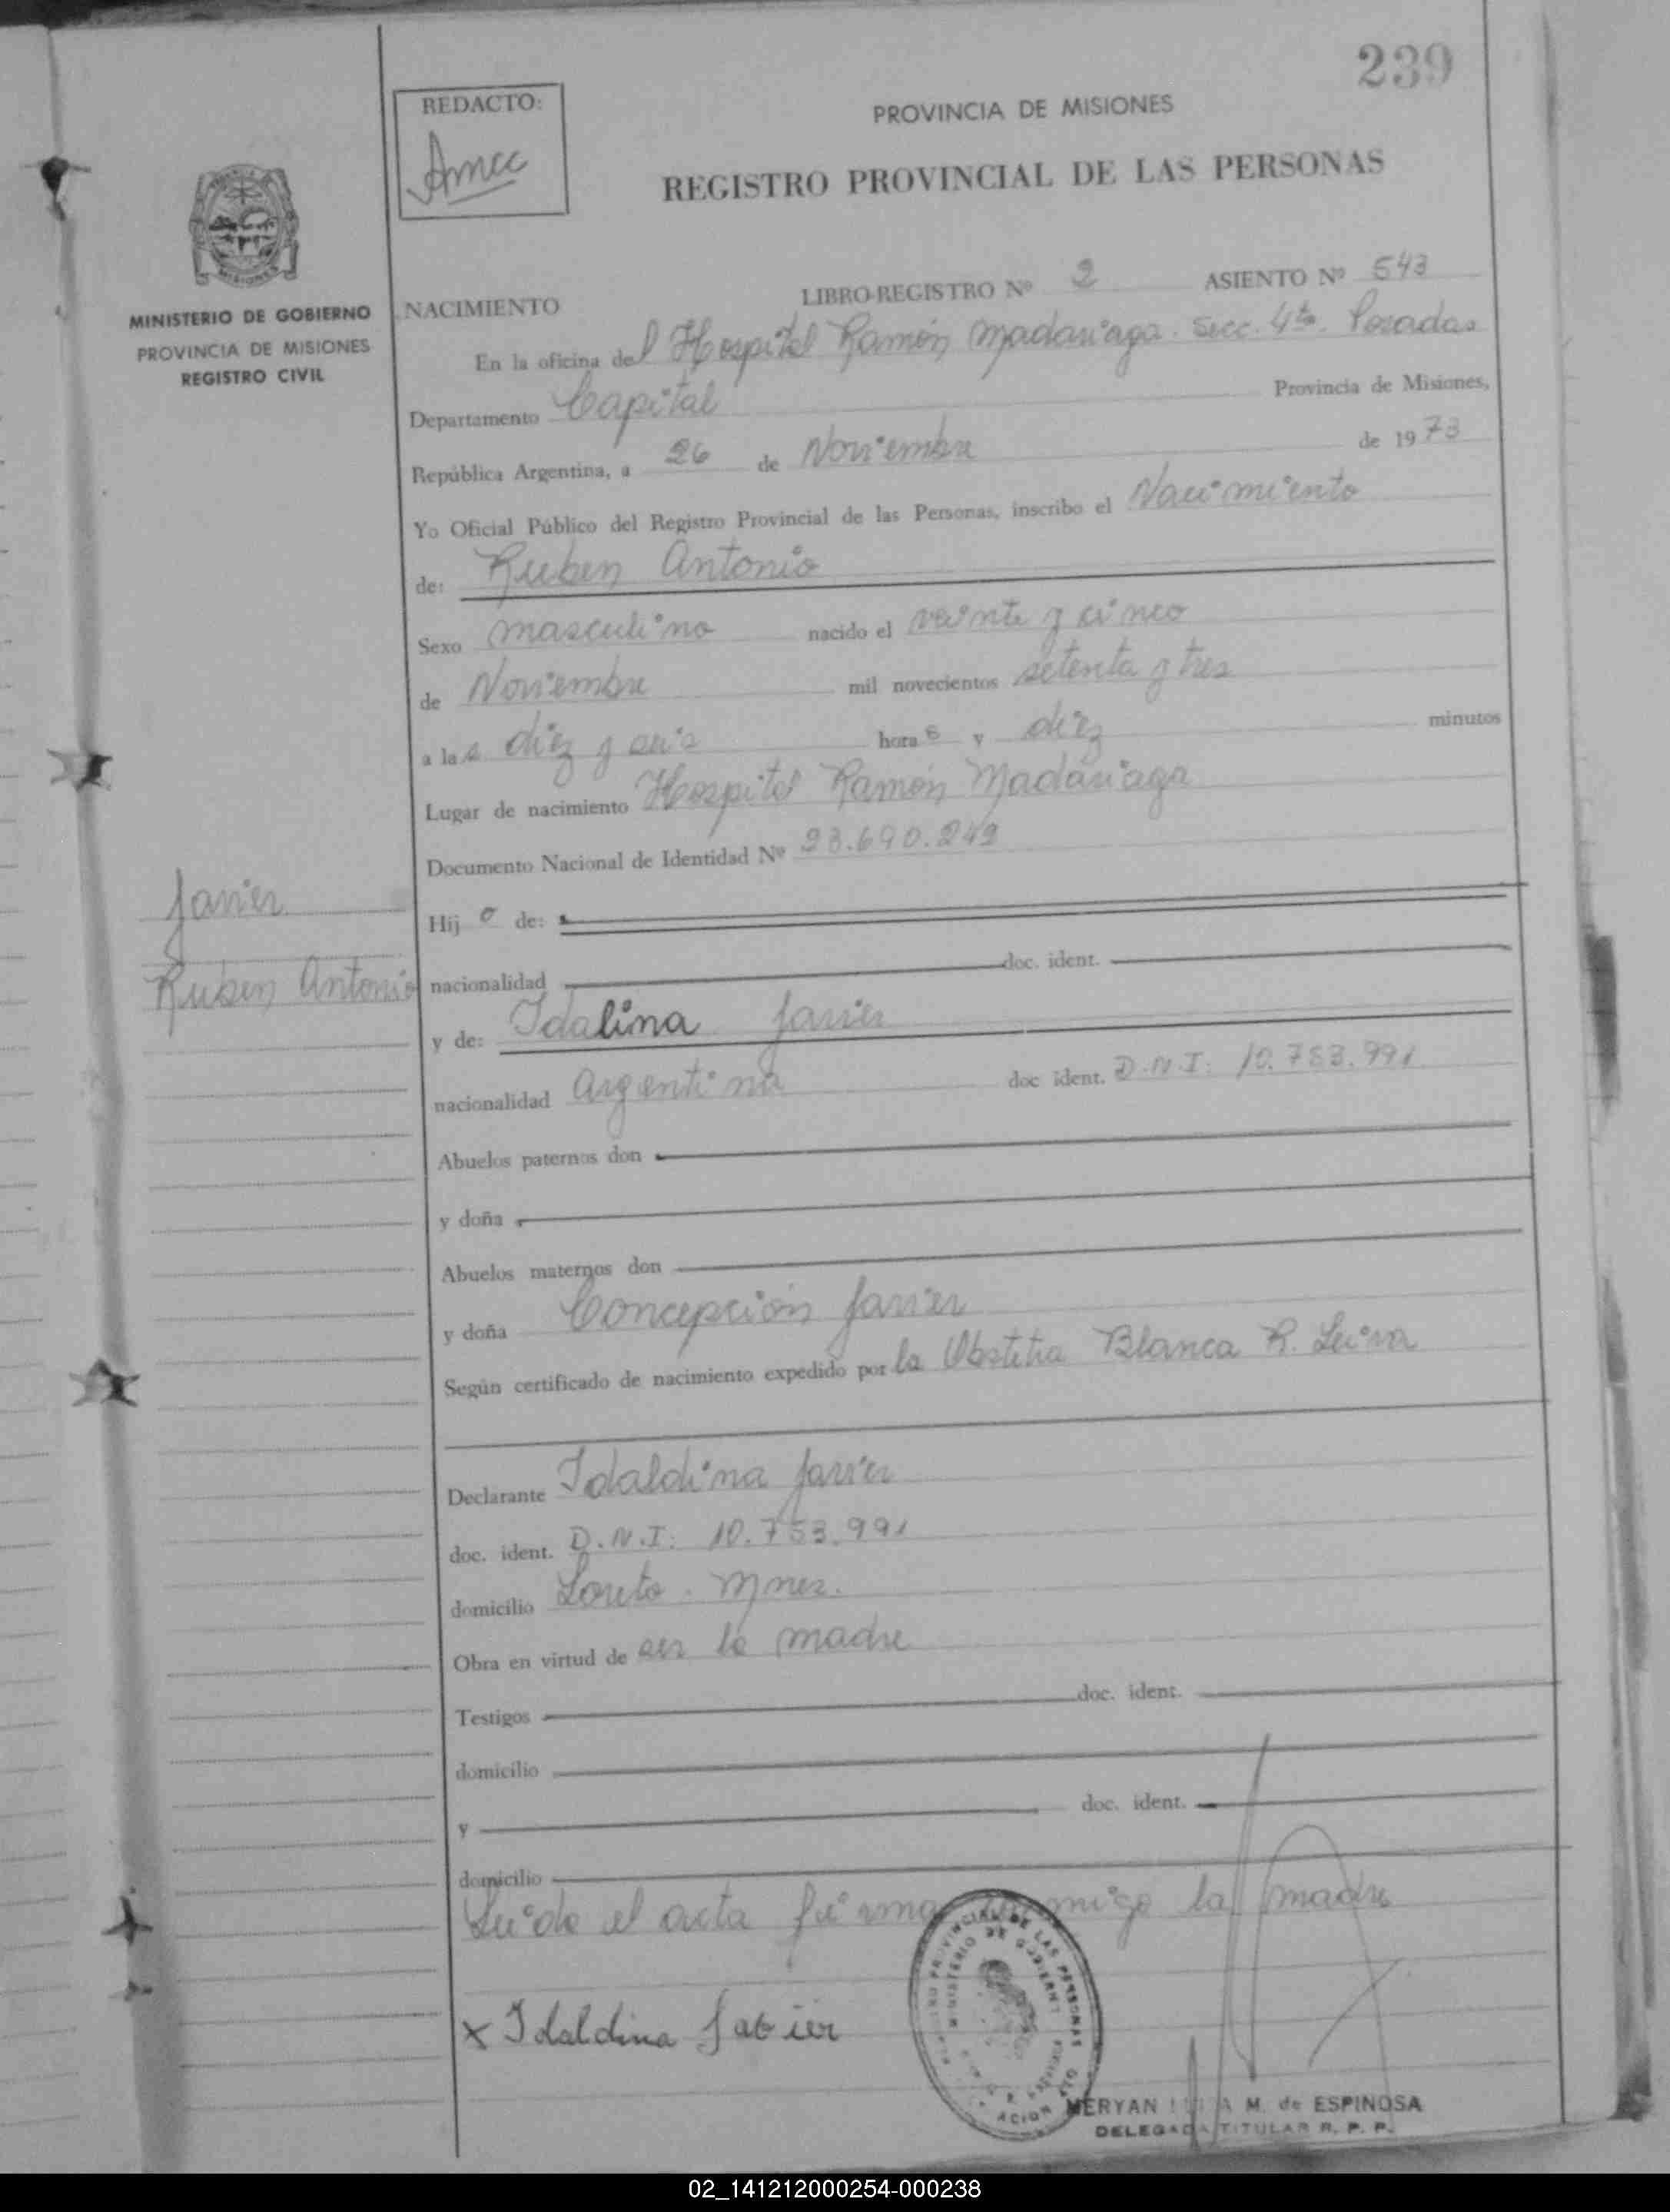 239
REDACTO:
PROVINCIA DE MISIONES
REGISTRO PROVINCIAL DE LAS PERSONAS
MISIONES
MINISTERIO DE GOBIERNO
PROVINCIA DE MISIONES
REGISTRO CIVIL
NACIMIENTO LIBRO-REGISTRO Nº 2 ASIENTO Nº 543
En la oficina del Hospital Ramón Madariaga. Secc. 4ta. Posadas
Departamento Capital Provincia de Misiones,
República Argentina, a 26 de Noviembre de 1973
Yo Oficial Público del Registro Provincial de las Personas, inscribo el Nacimiento
de: Ruben Antonio
Sexo masculino nacido el veinte y cinco
de Noviembre mil novecientos setenta y tres
a las diez y seis horas y diez minutos
Lugar de nacimiento Hospital Ramón Madariaga
Documento Nacional de Identidad Nº 23.690.249
Javier
Ruben Antonio
Hijo de:
nacionalidad doc. ident.
y de: Idalina Javier
nacionalidad Argentina doc ident. D.N.I: 10.753.991
Abuelos paternos don
y doña
Abuelos maternos don
y doña Concepción Javier
Según certificado de nacimiento expedido por la Obstetra Blanca R. Leiva
Declarante Idaldina Javier
doc. ident. D.N.I: 10.753.991
domicilio Loreto. Mnes.
Obra en virtud de ser la madre
Testigos doc. ident.
domicilio
y doc. ident.
domicilio
Leido el acta firma conmigo la madre
x Idaldina Jabier
MERYAN M. de ESPINOSA
DELEGADA TITULAR R. P. P.
02_141212000254-000238